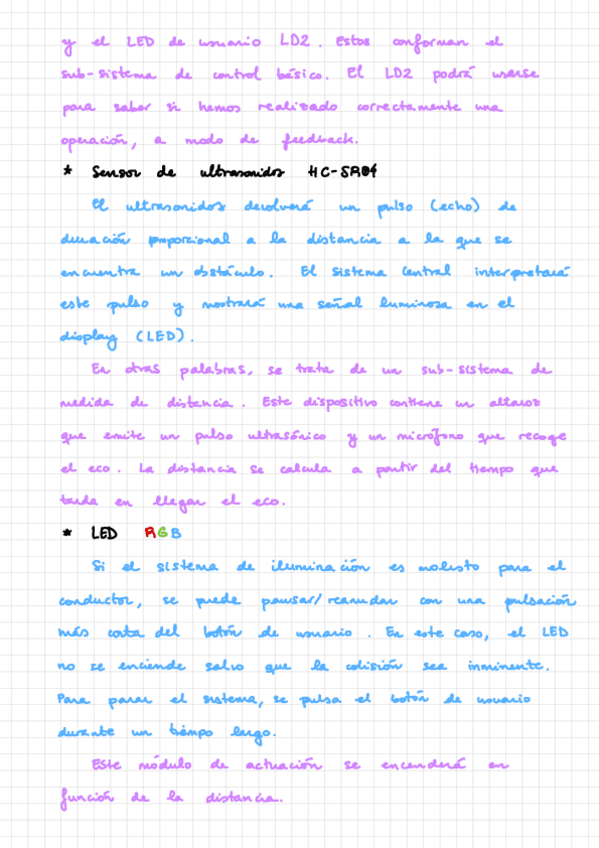 y el LED de usuario LD2. Estos conforman el
sub-sistema de control básico. El LD2 podrá usarse
para saber si hemos realizado correctamente una
operación, a modo de feedback.
* Sensor de ultrasonidos HC-SR04
El ultrasonidos devolverá un pulso (echo) de
duración proporcional a la distancia a la que se
encuentra un obstáculo. El sistema central interpretará
este pulso y mostrará una señal luminosa en el
display (LED).
En otras palabras, se trata de un sub-sistema de
medida de distancia. Este dispositivo contiene un altavoz
que emite un pulso ultrasónico y un micrófono que recoge
el eco. La distancia se calcula a partir del tiempo que
tarda en llegar el eco.
* LED RGB
Si el sistema de iluminación es molesto para el
conductor, se puede pausar/reanudar con una pulsación
más corta del botón de usuario. En este caso, el LED
no se enciende salvo que la colisión sea inminente.
Para parar el sistema, se pulsa el botón de usuario
durante un tiempo largo.
Este módulo de actuación se encenderá en
función de la distancia.